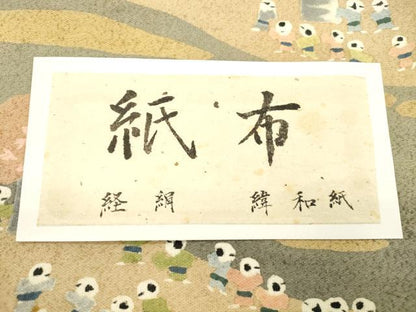 紙布
経 絹 緯 和紙